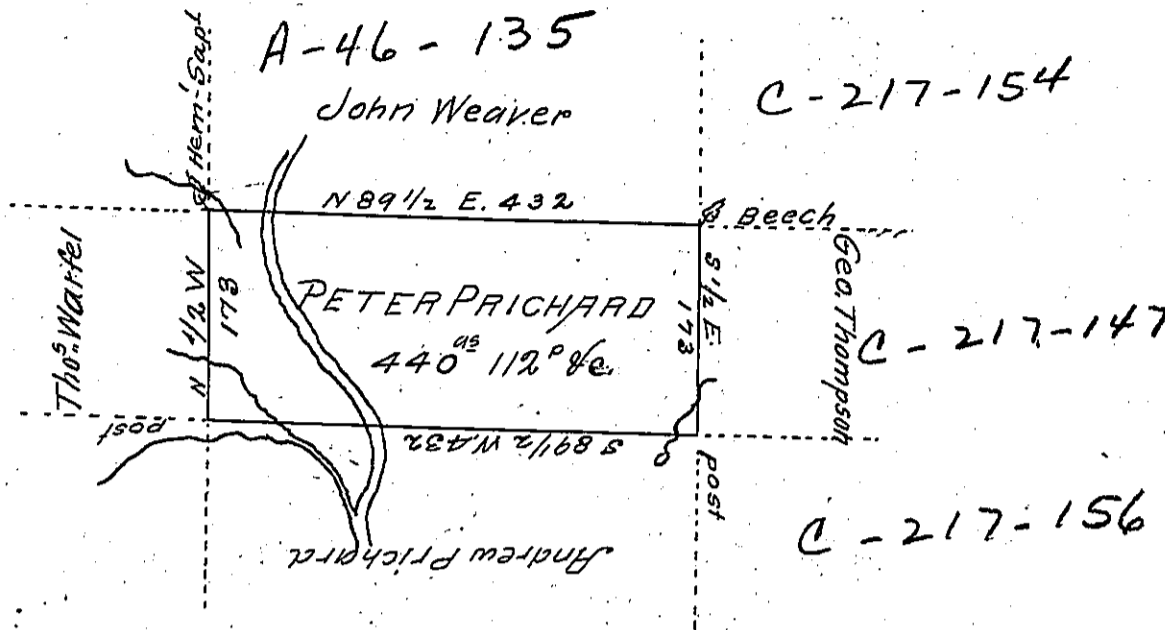 A-46-135
John Weaver
C-217-154
Hem. Sapl
N 89 1/2 E. 432
Beech
Thos. Warfel
N 1/2 W
173
PETER PRICHARD
440 as 112 p &c.
S 1/2 E.
173
Geo. Thompson
C-217-147
post
S 89 1/2 W. 432
post
Andrew Prichard
C-217-156